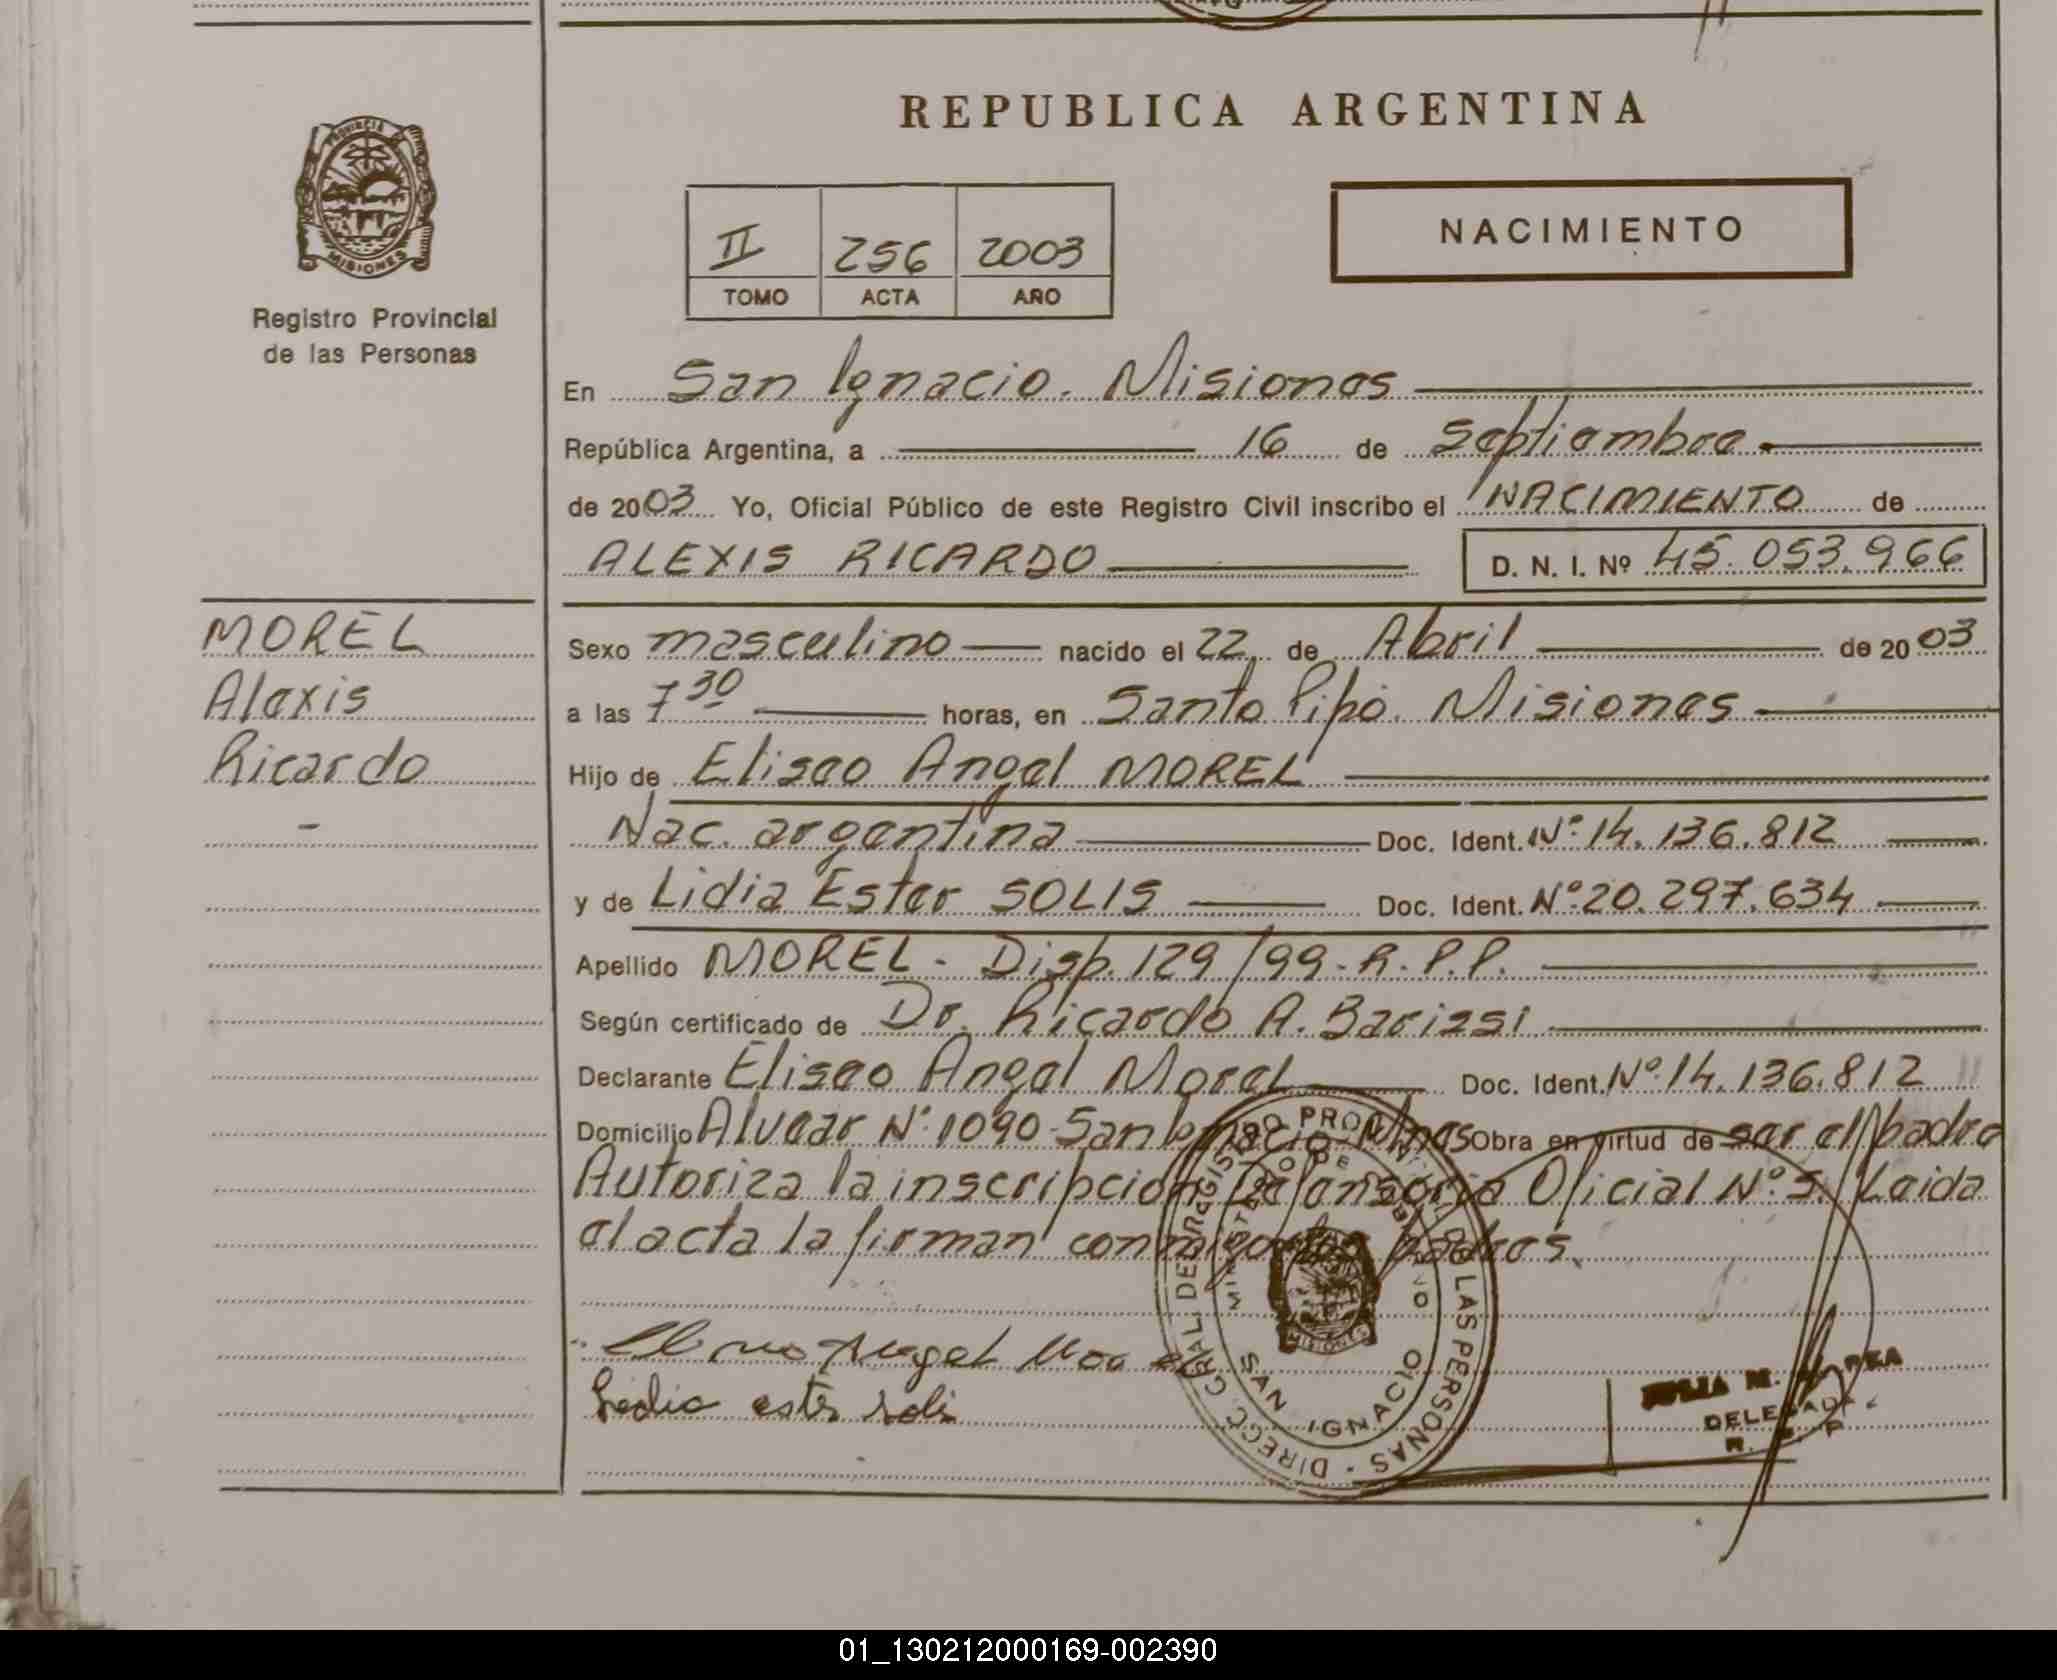 REPUBLICA ARGENTINA
PROVINCIA
MISIONES
Registro Provincial
de las Personas
II 256 2003
TOMO ACTA AÑO
NACIMIENTO
En San Ignacio. Misiones
República Argentina, a 16 de Septiembre
de 2003 Yo, Oficial Público de este Registro Civil inscribo el NACIMIENTO de
ALEXIS RICARDO D. N. I. Nº 45.053.966
MOREL
Alexis
Ricardo
Sexo masculino nacido el 22 de Abril de 2003
a las 7 30 horas, en Santo Pipó. Misiones
Hijo de Eliseo Angel MOREL
Nac. argentina Doc. Ident. Nº 14.136.812
y de Lidia Ester SOLIS Doc. Ident. Nº 20.297.634
Apellido MOREL - Disp. 129/99 - R.P.P.
Según certificado de Dr. Ricardo A. Barissi
Declarante Eliseo Angel Morel Doc. Ident. Nº 14.136.812
Domicilio Alvear Nº 1090 - San Ignacio - Mnes Obra en virtud de ser el padre
Autoriza la inscripción Defensoria Oficial Nº 5. Leida
el acta la firman conmigo los padres.
Angel
Lidia ester solis
DIRECC. GRAL. DEL REGISTRO PROVINCIAL DE LAS PERSONAS
MINISTERIO DE GOBIERNO
MISIONES
SAN IGNACIO
JULIA M.
DELEGADA
R. P. P.
01_130212000169-002390